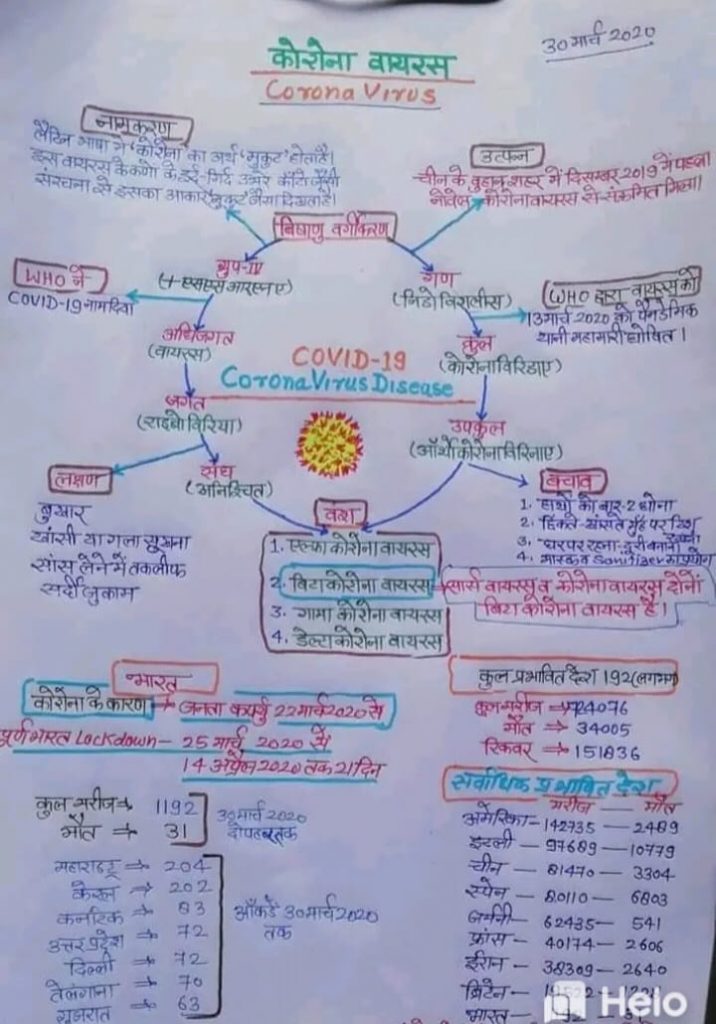 30 मार्च 2020
कोरोना वायरस
Corona Virus
नामकरण
लैटिन भाषा में 'कोरोना' का अर्थ 'मुकुट' होता है।
इस वायरस के कणों के इर्द-गिर्द उभरे काँटे जैसी
संरचना से इसका आकार मुकुट जैसा दिखता है।
उत्पन्न
चीन के वुहान शहर में दिसम्बर 2019 में पहला
नोवेल कोरोना वायरस से संक्रमित मिला।
विषाणु वर्गीकरण
WHO ने
COVID-19 नाम दिया
ग्रुप-IV
(+ एसएस आरएनए)
अधिजगत
(वायरस)
जगत
(राइबोविरिया)
संघ
(अनिश्चित)
गण
(निडोविरालीस)
कुल
(कोरोनाविरिडाए)
उपकुल
(ऑर्थोकोरोनाविरिनाए)
WHO द्वारा वायरस को
13 मार्च 2020 को पैनडेमिक
यानी महामारी घोषित।
COVID-19
Corona Virus Disease
लक्षण
बुखार
खांसी या गला सूखना
सांस लेने में तकलीफ
सर्दी जुकाम
वंश
1. एल्फा कोरोना वायरस
2. बिटा कोरोना वायरस
3. गामा कोरोना वायरस
4. डेल्टा कोरोना वायरस
सार्स वायरस व कोरोना वायरस दोनों
बिटा कोरोना वायरस है।
बचाव
1. हाथों को बार-2 धोना
2. छिंकते-खांसते मुँह पर
3. घर पर रहना-दूरी बनाना
4. मास्क व Sanitizer का प्रयोग
भारत
कोरोना के कारण → जनता कर्फ्यु 22 मार्च 2020 से
पूर्ण भारत Lockdown - 25 मार्च 2020 से
14 अप्रैल 2020 तक 21 दिन
कुल मरीज → 1192
मौत → 31
30 मार्च 2020
दोपहर तक
महाराष्ट्र → 204
केरल → 202
कर्नाटक → 83
उत्तर प्रदेश → 72
दिल्ली → 72
तेलंगाना → 70
गुजरात → 63
आँकड़े 30 मार्च 2020
तक
कुल प्रभावित देश 192 (लगभग)
कुल मरीज → 724076
मौत → 34005
रिकवर → 151836
सर्वाधिक प्रभावित देश
मरीज - मौत
अमेरिका - 142735 - 2489
इटली - 97689 - 10779
चीन - 81470 - 3304
स्पेन - 80110 - 6803
जर्मनी - 62435 - 541
फ्रांस - 40174 - 2606
ईरान - 38309 - 2640
ब्रिटेन -
भारत -
Helo